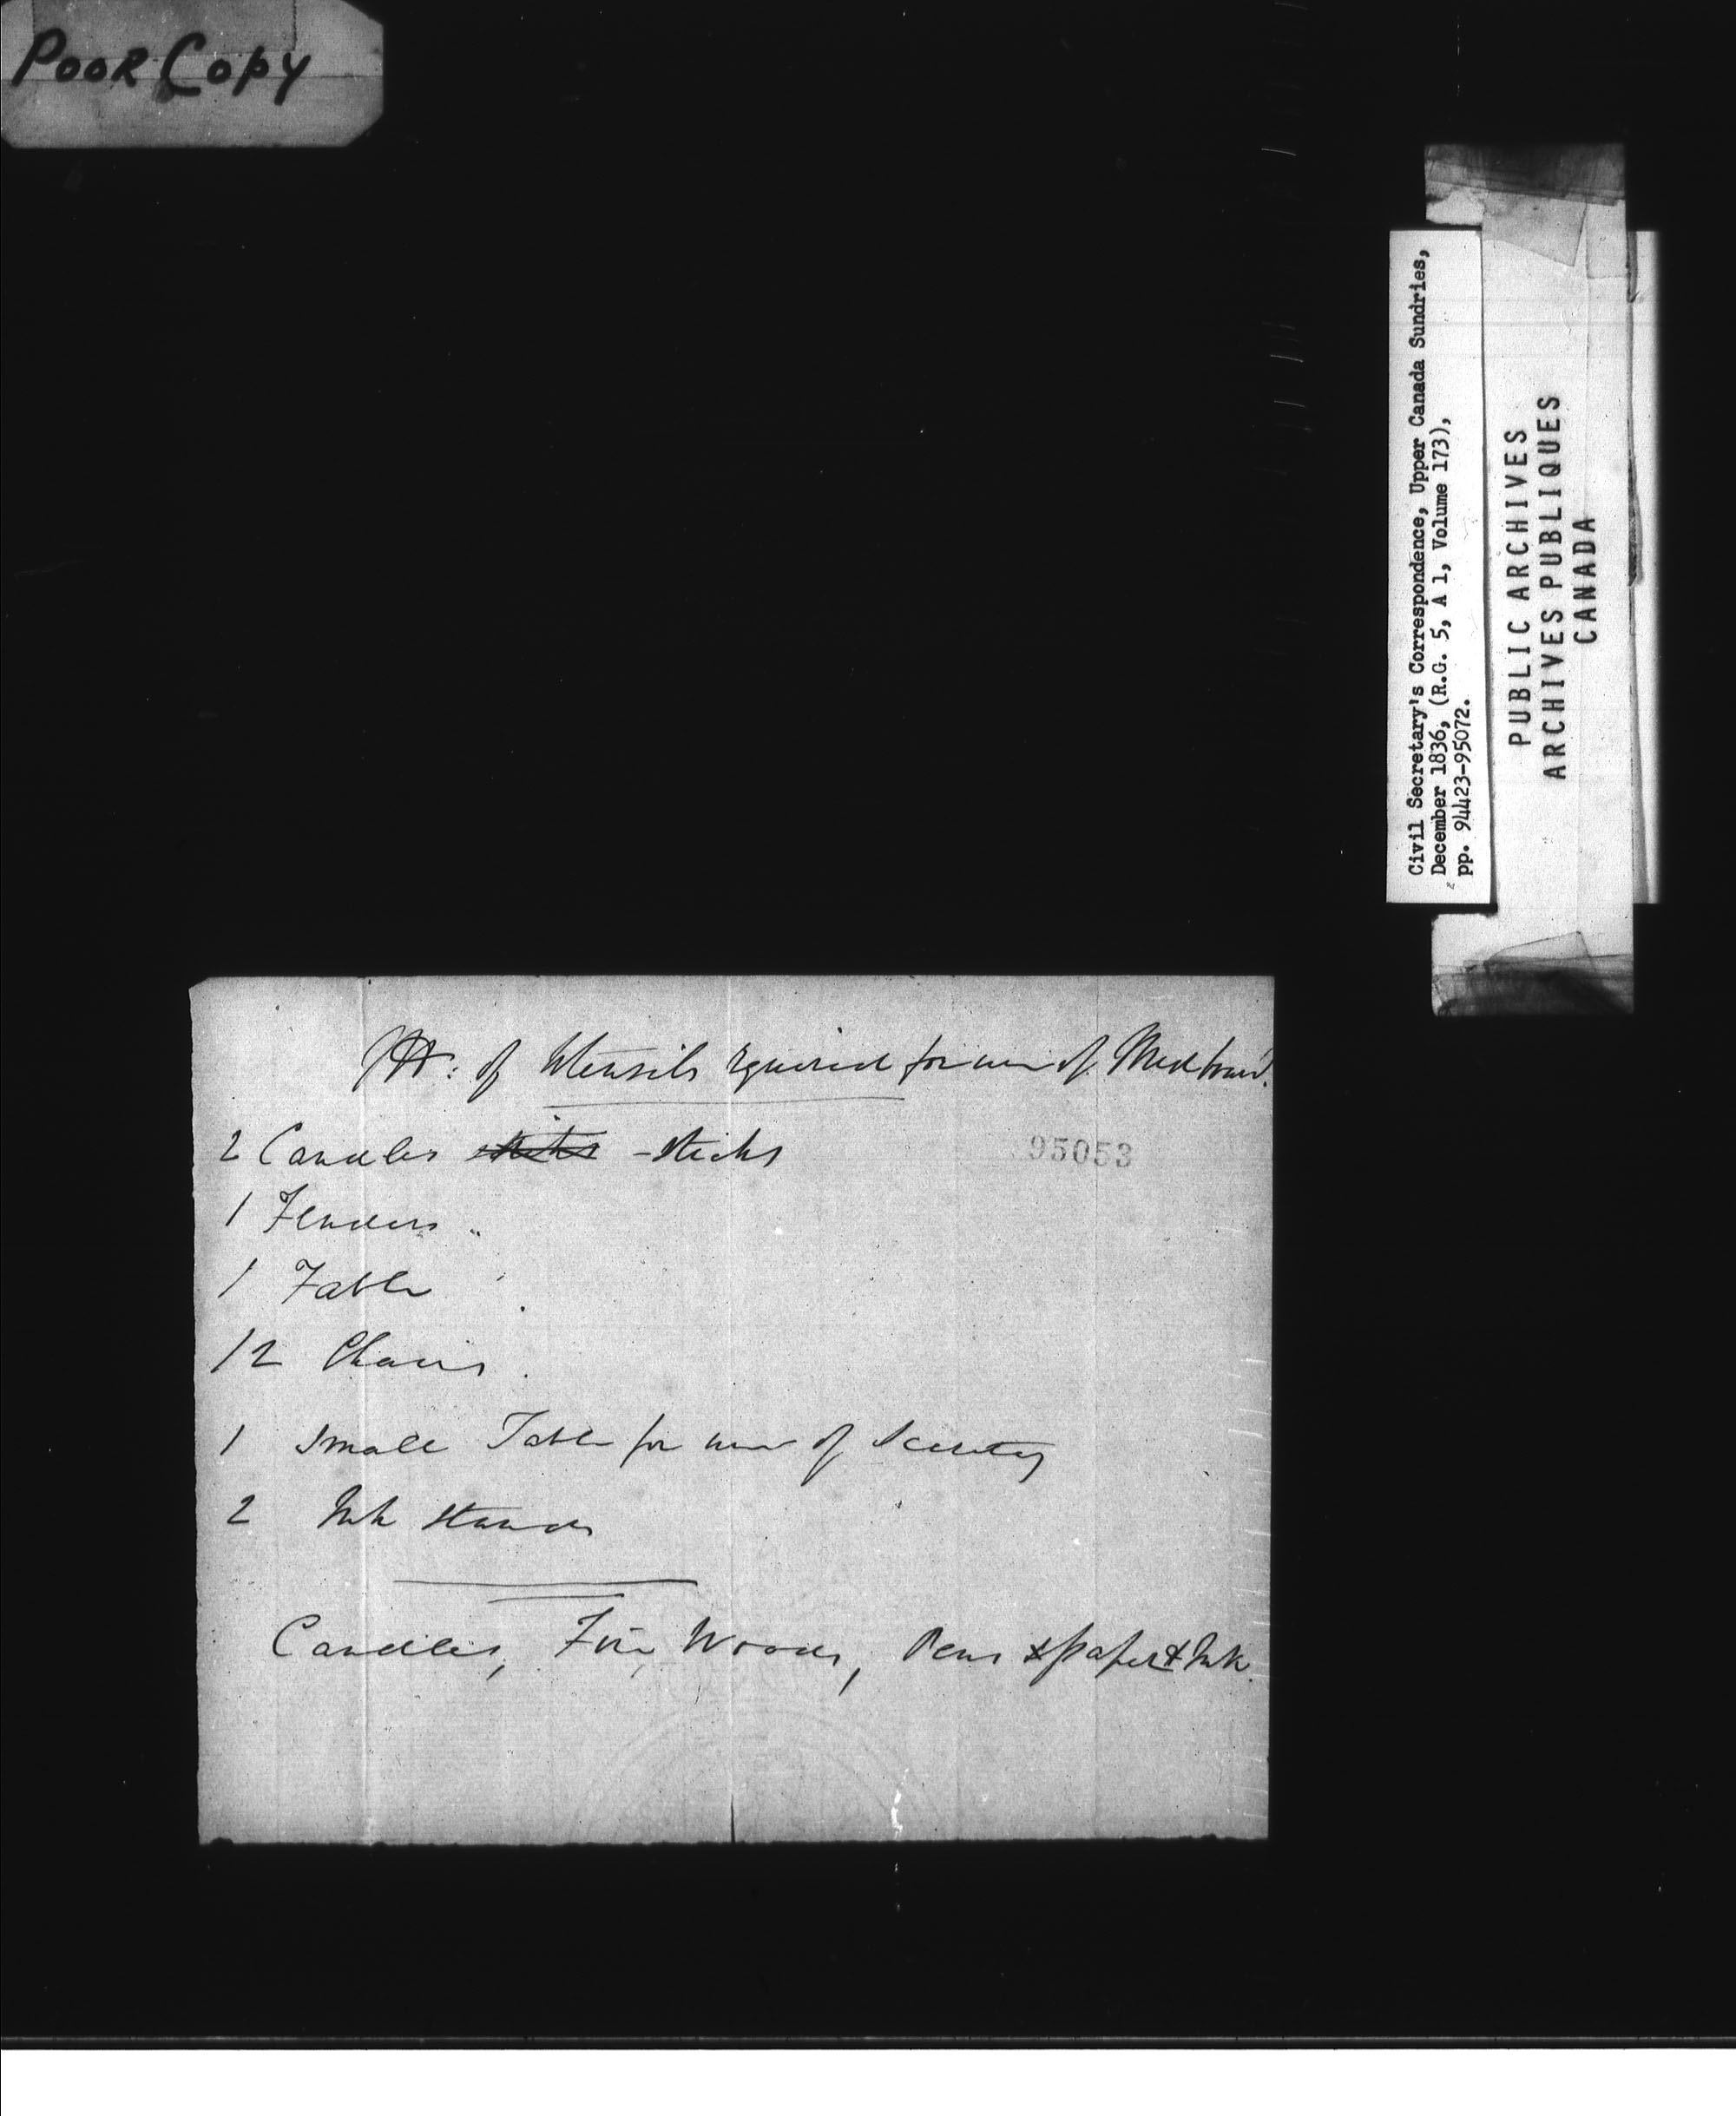 POOR COPY
Civil Secretary's Correspondence, Upper Canada Sundries,
December 1836, (R.G. 5, A 1, Volume 173),
pp. 94423-95072.
PUBLIC ARCHIVES
ARCHIVES PUBLIQUES
CANADA
of Utensils required for use of Med board.
2 Candles sticks - sticks
95053
1 Fenders
1 Table
12 Chairs
1 Small Table for use of Secretary
2 Ink Stands
Candles, Fire Woods, Pens & paper & Ink.